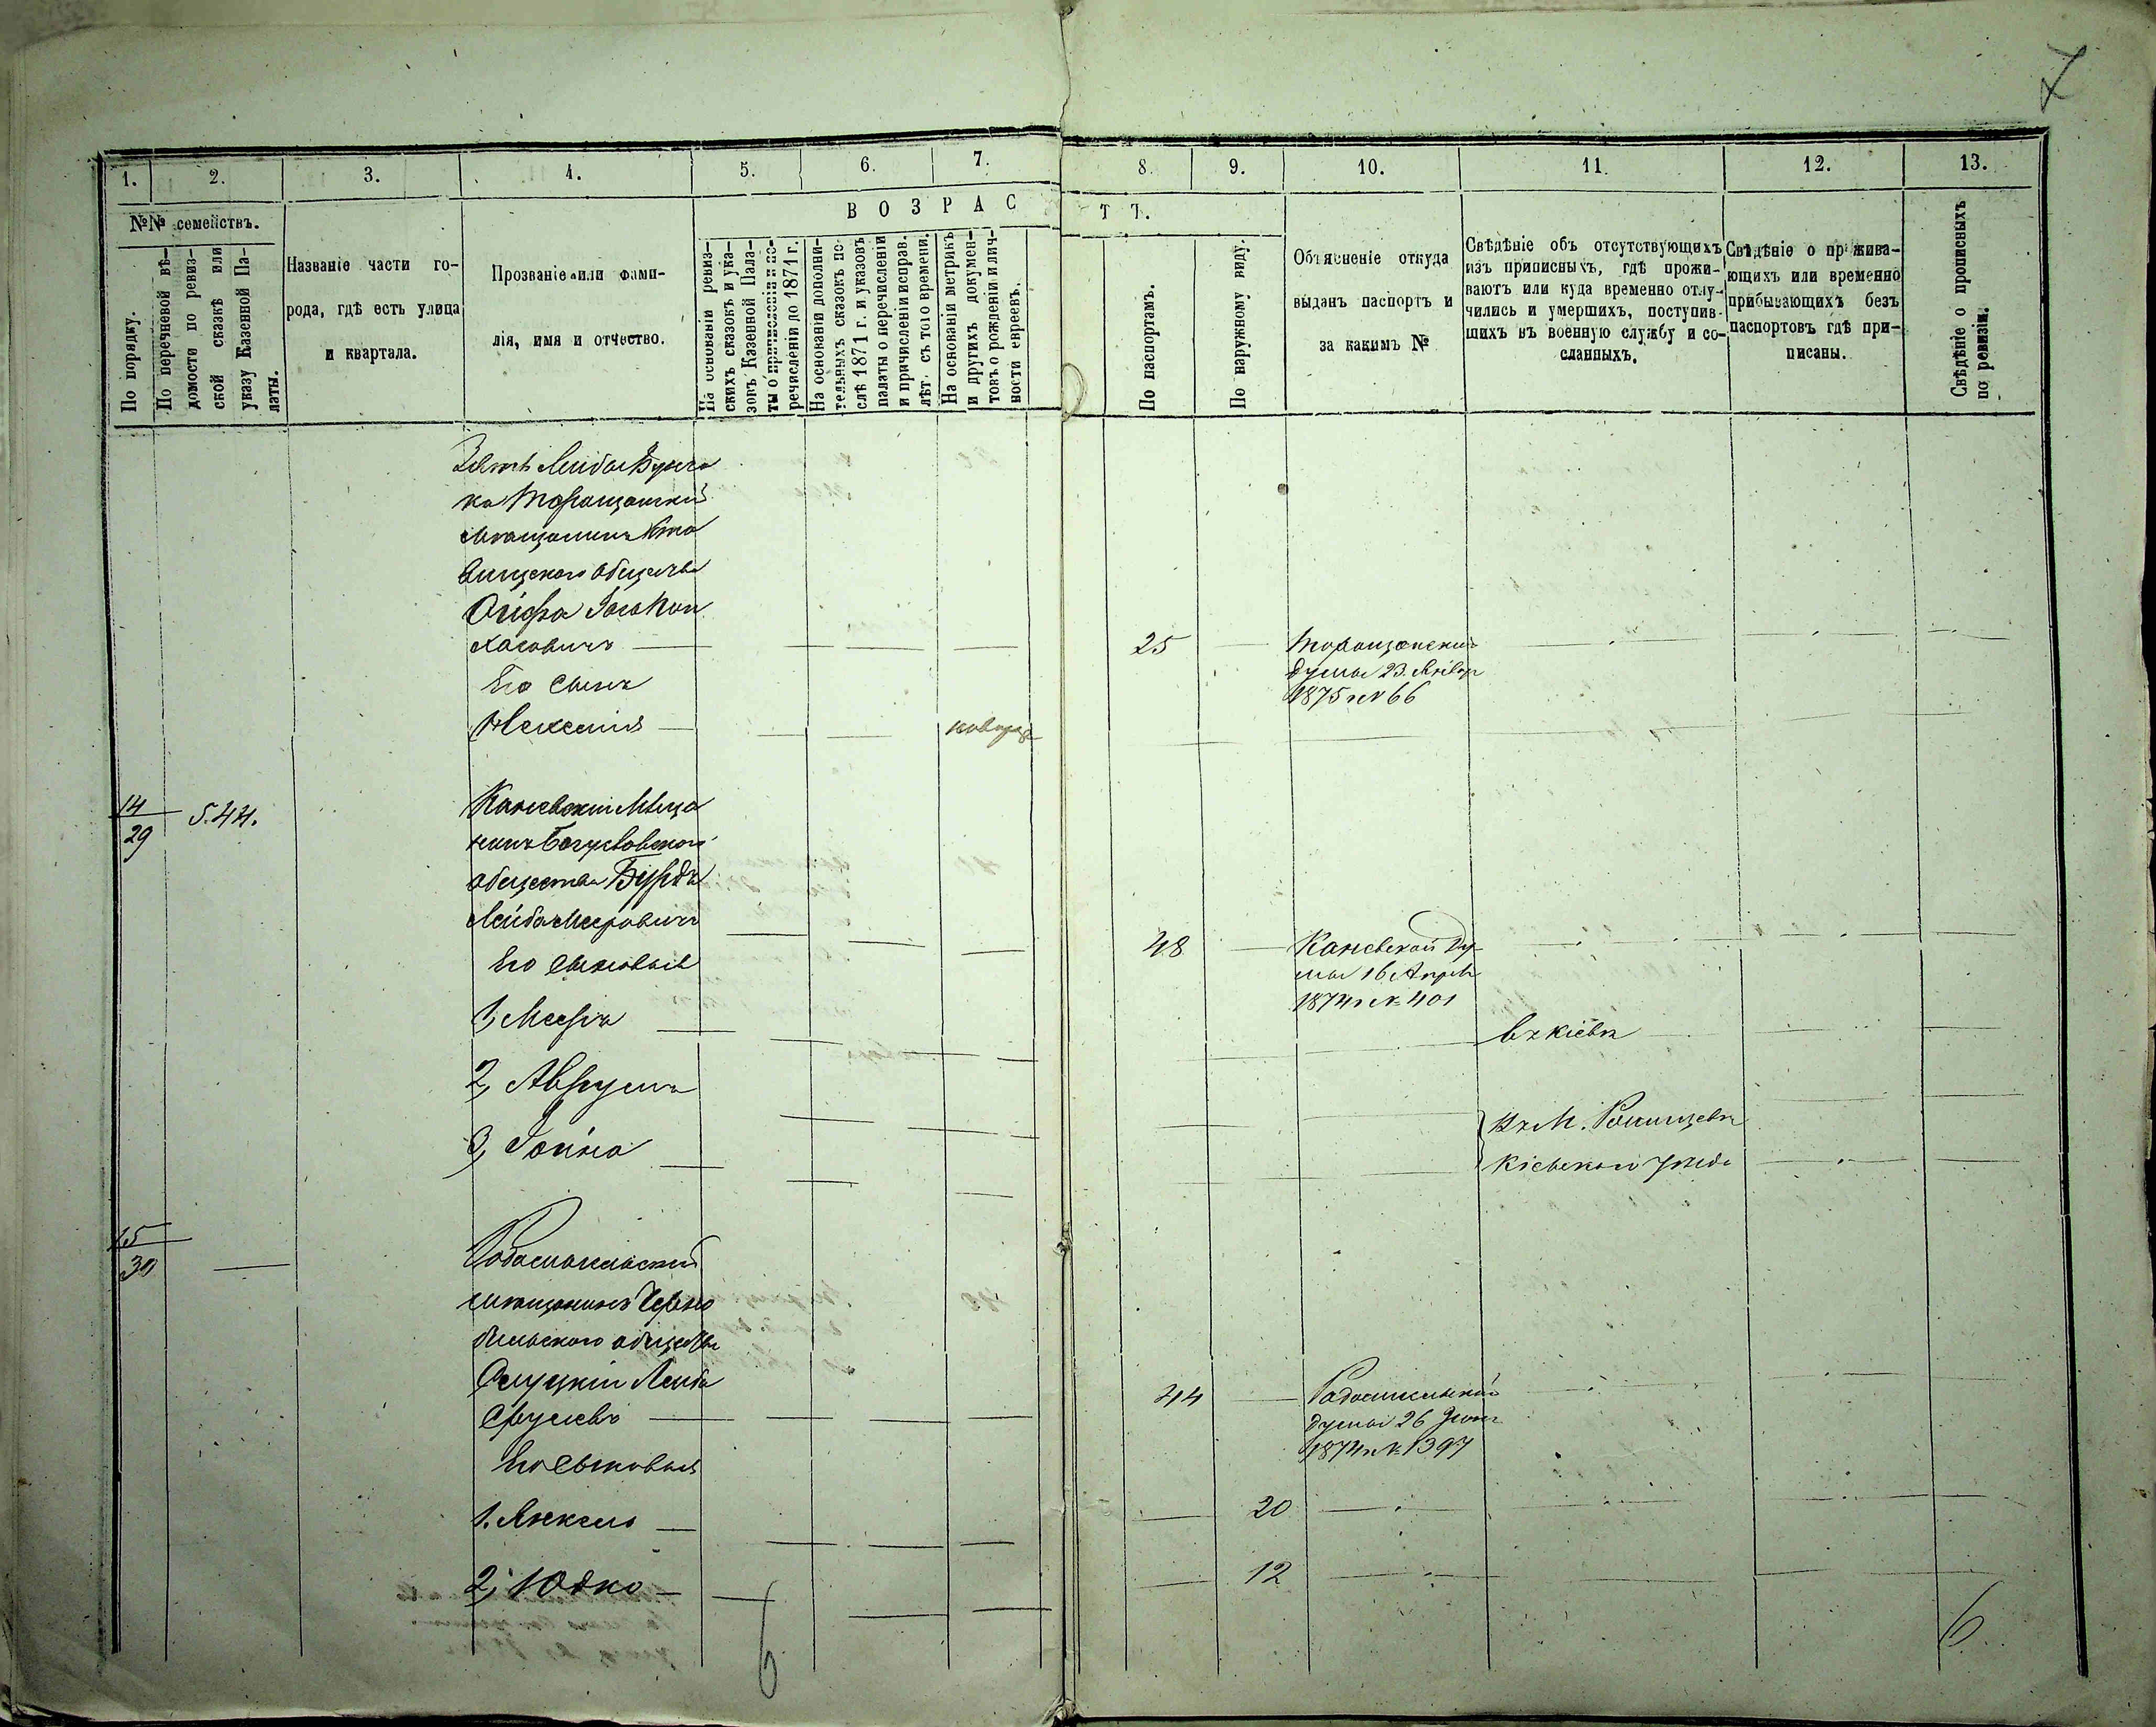 7
1. 2. 3. 4. 5. 6. 7. 8. 9. 10. 11. 12. 13.
№№ семействъ.
По порядку.
По перечневой вѣ-
домости по ревиз-
ской сказкѣ или
указу Казенной Па-
латы.
Названіе части го-
рода, гдѣ есть улица
и квартала.
Прозваніе или фами-
лія, имя и отчество.
ВОЗРАСТЪ.
На основаніи ревиз-
скихъ сказокъ и ука-
зовъ Казенной Пала-
ты о причисленіи и пе-
речисленіи до 1871 г.
На основаніи дополни-
тельныхъ сказокъ по-
слѣ 1871 г. и указовъ
палаты о перечисленіи
и причисленіи исправ.
лѣт. съ того времени.
На основаніи метрикъ
и другихъ докумен-
товъ о рожденіи и лич-
ности евреевъ.
По паспортамъ.
По наружному виду.
Объясненіе откуда
выданъ паспортъ и
за какимъ №
Свѣдѣніе объ отсутствующихъ
изъ приписныхъ, гдѣ прожи-
ваютъ или куда временно отлу-
чились и умершихъ, поступив-
шихъ въ военную службу и со-
сланныхъ.
Свѣдѣніе о прожива-
ющихъ или временно
прибывающихъ безъ
паспортовъ гдѣ при-
писаны.
Свѣдѣніе о прописныхъ
по ревизіи.
Зять Лейбы
Таращанскій
мѣщанинъ
общества
25
Таращанской
думы 23 Январ
1875 г № 66
Его сынъ
новорожд
14
29
544.
Каневскій Мѣща
нинъ Богуславского
общества Бурдъ
Лейба Меировичъ
48
Каневской Ду
мы 16 Апрѣл
1874 г № 401
Его сыновья
1, Меиръ
въ Кіевѣ
2, Аврумъ
3, Іойна
въ М.
Кіевскаго уѣзда
15
30
Радомысльскій
мѣщанинъ Черно
быльского общества
Слуцкій Лейба
Срулевъ
44
Радомысльской
думы 26
1874 г № 1397
Его сыновья
1. Янкель
20
2, Юдко
12
6
6